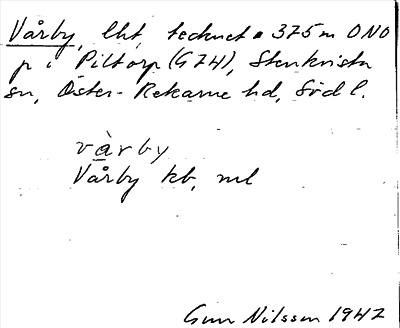 Vårby, lht, tecknet ▪ 375 m ONO
p i Piltorp (G74), Stenkvista
sn, Öster-Rekarne hd, Södl.
vàrby
Vårby kb, ml
Gun Nilsson 1942